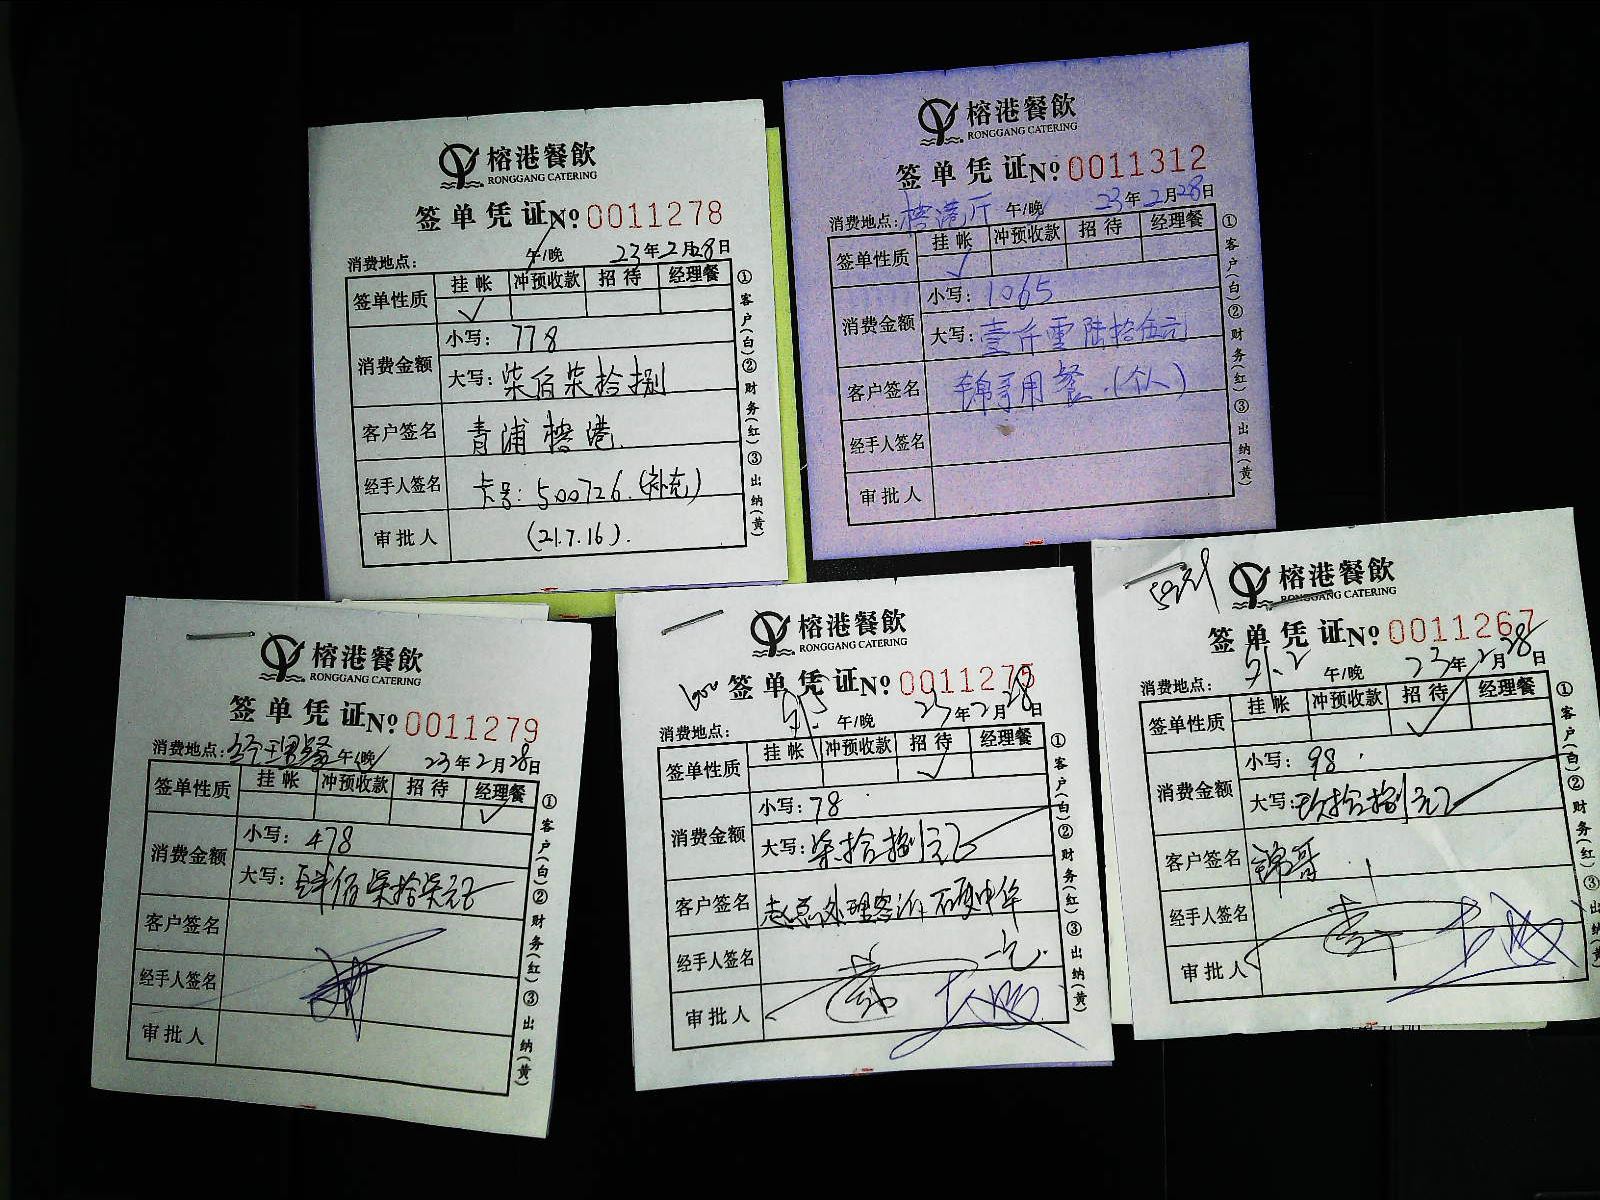 榕港餐飲
RONGGANG CATERING
签单凭证№ 0011278
消费地点: 午/晚 23年2月28日
签单性质 挂帐 冲预收款 招待 经理餐
✓
消费金额 小写: 778
大写: 柒佰柒拾捌
客户签名 青浦榕港
经手人签名 卡号: 500726.(补充)
审批人 (21.7.16).
①客户(白)②财务(红)③出纳(黄)
榕港餐飲
RONGGANG CATERING
签单凭证№ 0011312
消费地点: 榕港厅 午/晚 23年2月28日
签单性质 挂帐 冲预收款 招待 经理餐
✓
消费金额 小写: 1065
大写: 壹仟零陆拾伍元
客户签名 锦哥用餐.(个人)
经手人签名
审批人
①客户(白)②财务(红)③出纳(黄)
榕港餐飲
RONGGANG CATERING
签单凭证№ 0011279
消费地点: 午/晚 23年2月28日
签单性质 挂帐 冲预收款 招待 经理餐
✓
消费金额 小写: 478
大写: 肆佰柒拾柒元
客户签名
经手人签名
审批人
①客户(白)②财务(红)③出纳(黄)
榕港餐飲
RONGGANG CATERING
签单凭证№ 0011275
消费地点: 午/晚 23年2月28日
签单性质 挂帐 冲预收款 招待 经理餐
✓
消费金额 小写: 78
大写: 柒拾捌元
客户签名 赵总处理客诉
经手人签名
审批人
①客户(白)②财务(红)③出纳(黄)
榕港餐飲
RONGGANG CATERING
签单凭证№ 0011267
消费地点: 午/晚 23年2月28日
签单性质 挂帐 冲预收款 招待 经理餐
✓
消费金额 小写: 98
大写: 玖拾捌元
客户签名 锦哥
经手人签名
审批人
①客户(白)②财务(红)③出纳(黄)